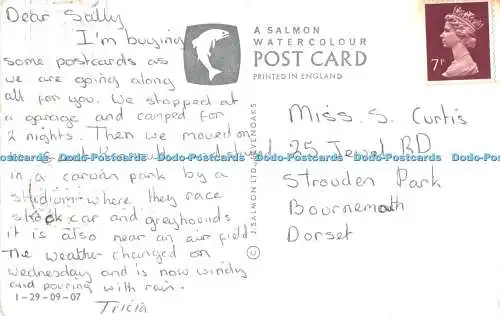 Dear Sally
I'm buying
some postcards as
we are going along
all for you. We stopped at
a garage and camped for
2 nights. Then we moved on
in a carvin park by a
stadium where they race
stock car and greyhounds
it is also near an air field
The weather changed on
wednesday and is now windy
and pouring with rain.
Tricia
1-29-09-07
A SALMON
WATERCOLOUR
POST CARD
PRINTED IN ENGLAND
J. SALMON LTD. SEVENOAKS ©
7P
Miss. S. Curtis
25 Jewel RD
Strouden Park
Bournemouth
Dorset
Dodo-Postcards Dodo-Postcards Dodo-Postcards Dodo-Postcards Dodo-Postcards